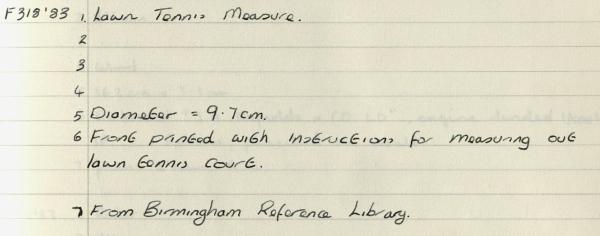 F318'83 1. Lawn Tennis Measure.
2
3
4
5 Diameter = 9.7cm.
6 Front printed with instructions for measuring out
lawn tennis court.
7 From Birmingham Reference Library.